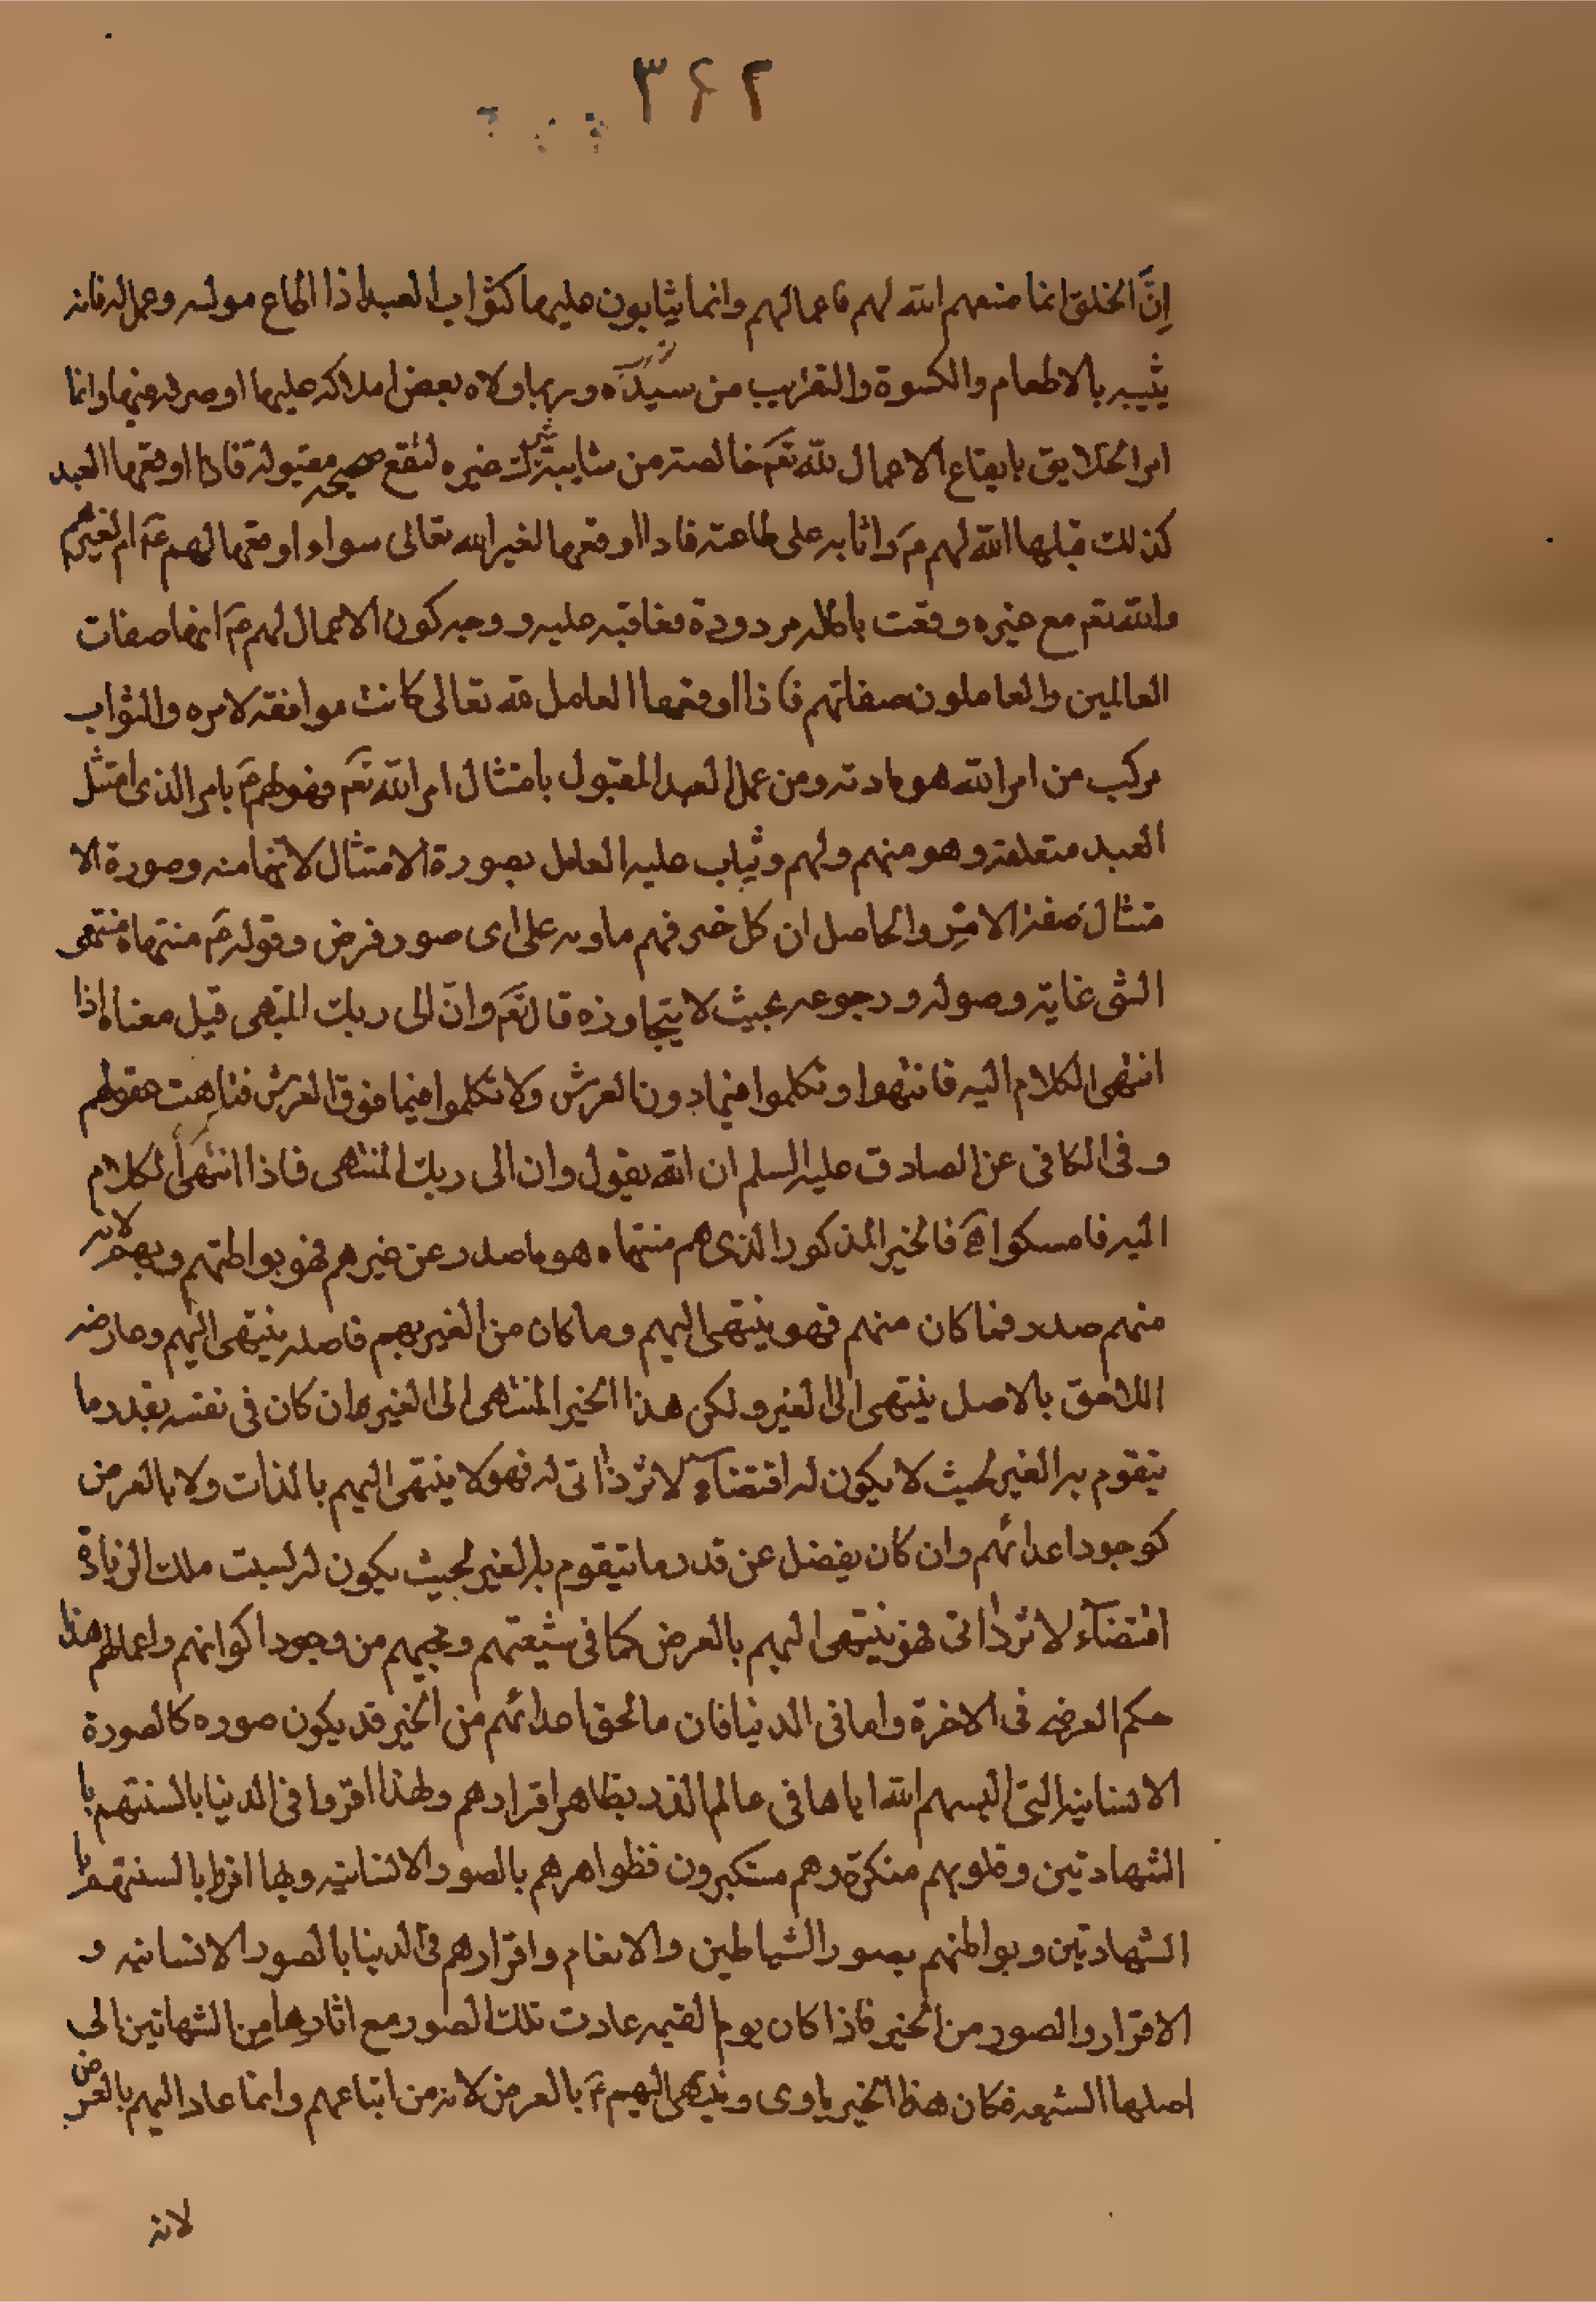 ۳۶۲
اِنَّ الخلق انما صنعهم الله لهم فاعمالهم وانما يثابون عليها كثواب العبد اذا اطاع مولىه وعمل له فانه
يثيبه بالاطعام والكسوة والتقريب من سيّده وربما ولاه بعض املاكه عليها او صرفه عنها وانما
امر الخلايق بايقاع الاعمال لله تعَ خالصة من شايبة شرك غيره لتقع صحيحة مقبولة فاذا اوقعها العبد
كذلك قبلها الله لهم عَ واثابه على طاعته فاذا اوقعها لغير الله تعالى سواء اوقعها لهم عَ ام لغيرهم
والله تعَ مع غيره وقعت باطلة مردودة فعاقبه عليه ووجه كون الاعمال لهم عَ انها صفات
العالمين والعاملون صفاتهم فاذا اوقعها العامل لله تعالى كانت موافقة لامره والثواب
مركب من امر الله هو مادته ومن عمل العبد المقبول بامتثال امر الله تعَ فهو لهم عَ بامر الذى امتثل
العبد متعلقه وهو منهم ولهم ويثاب عليه العامل بصورة الامتثال لانها منه وصورة الا
متثال صفة الامر والحاصل ان كل خير فهم ماويه على اى صور فرض وقوله عَ منتهاه منتهى
الشئ غايته وصوله ورجوعه بحيث لا يتجاوزه قال تعَ وانّ الى ربك المنتهى قيل معناه اذا
انتهى الكلام اليه فانتهوا وتكلموا فيما دون العرش ولا تكلموا فيما فوق العرش فتاهت عقولهم
وفى الكافى عن الصادق عليه السلم ان الله يقول وان الى ربك المنتهى فاذا انتهى الكلام
اليه فامسكوا فالخير المذكور الذى هم منتهاه هو ما صدر عن غيرهم فهو بواطنهم وبهم لانه
منهم صدر فما كان منهم فهو ينتهى اليهم وما كان من الغير بهم فاصله ينتهى اليهم وعارضه
اللاحق بالاصل ينتهى الى الغير ولكن هذا الخير المنتهى الى الغير ان كان فى نفسه بقدر ما
يتقوم به الغير بحيث لا يكون له اقتضاء لاثر ذاتى له فهو لا ينتهى اليهم بالذات ولا بالعرض
كوجود اعدائهم وان كان يفضل عن قدر ما يتقوم به الغير بحيث يكون له لسبت ملك الزيادة
اقتضاء لاثر ذاتى فهو ينتهى اليهم بالعرض كما فى شيعتهم ومحبيهم من وجود اكوانهم واعمالهم هذا
حكم العرضى فى الاخرة واما فى الدنيا فان ما لحق اعدائهم من الخير قد يكون صوره كالصورة
الانسانية التى البسهم الله اياها فى عالم الذر بظاهر اقرارهم ولهذا اقروا فى الدنيا بالسنتهم با
الشهادتين وقلوبهم منكرة وهم مستكبرون فظواهرهم بالصور الانسانيه وبها اقروا بالسنتهم با
الشهادتين وبواطنهم بصور الشياطين والانعام واقرارهم فى الدنيا بالصور الانسانيه و
الاقرار والصور من الخير فاذا كان يوم القيمه عادت تلك الصور مع اثارها من الشهاتين الى
اصلها الشيعه فكان هذا الخير ياوى وينتهى اليهم عَ بالعرض لانه من اتباعهم وانما عاد اليهم بالعرض
لانه